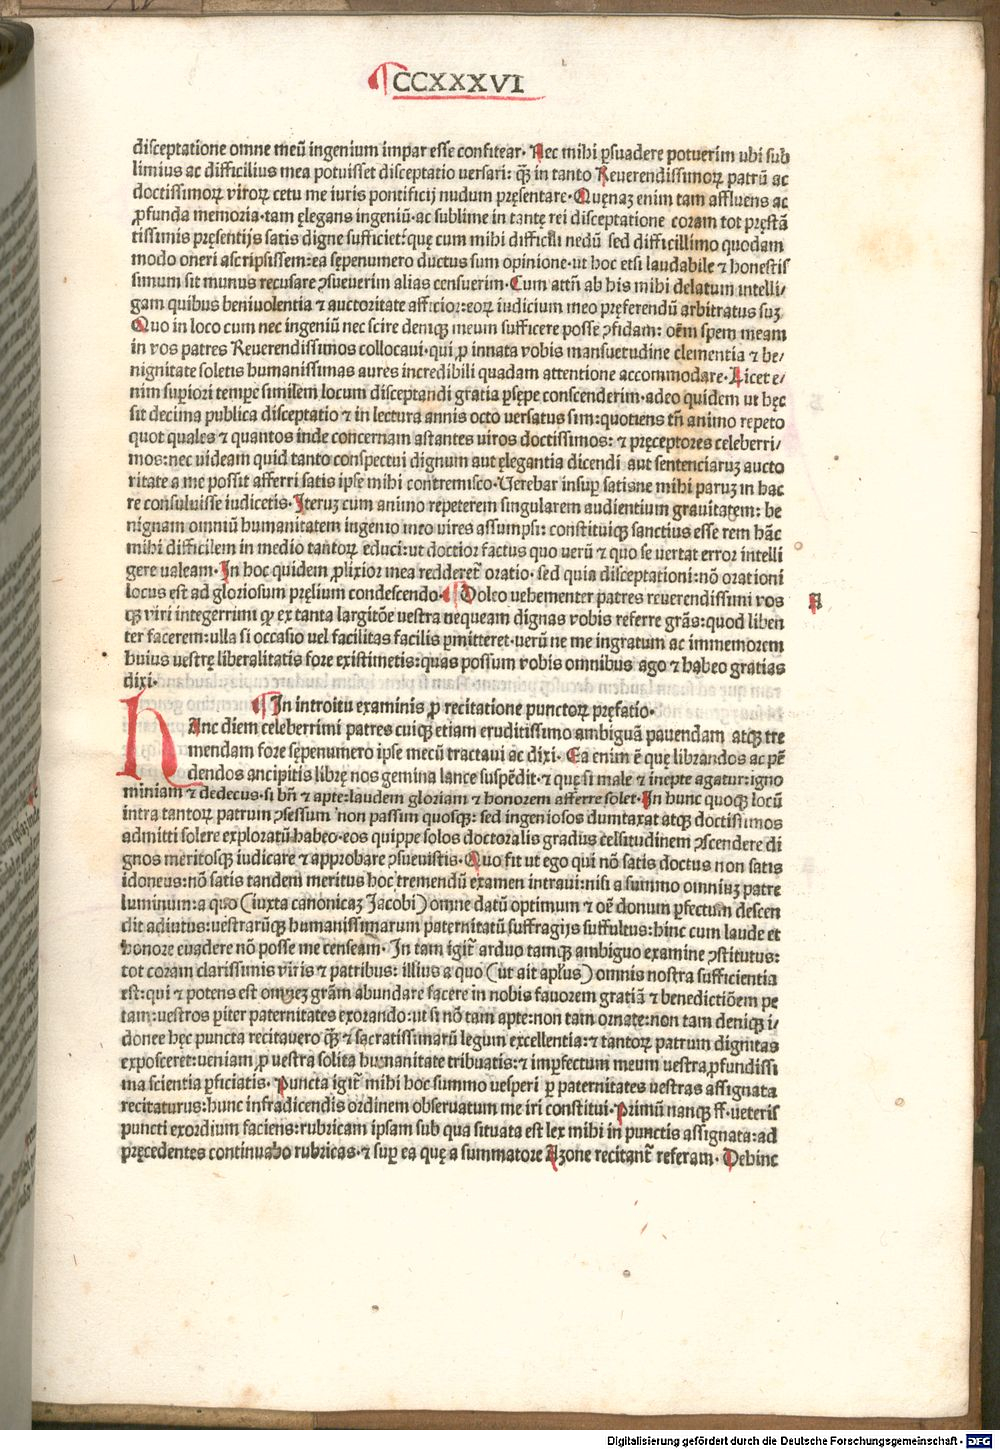 CCXXXVI
disceptatione omne meū ingenium impar esse confitear. Nec mihi ꝑsuadere potuerim ubi sub
limius ac difficilius mea potuisset disceptatio versari: qȝ̄ in tanto Reuerendissimoꝝ patrū ac
doctissimoꝝ viroꝝ cetu me iuris pontificij nudum pręsentare. Quęnaȝ enim tam affluens ac
ꝓfunda memoria. tam ęlegans ingeniū. ac sublime in tantę rei disceptatione coram tot pręstā
tissimis pręsentijs satis digne sufficiet: quę cum mihi difficili nedū sed difficillimo quodam
modo oneri ascripsissem: ea sępenumero ductus sum opinione. ut hoc etsi laudabile ⁊ honestis
simum sit munus recusare ꝯsueuerim alias censuerim. Cum attñ ab his mihi delatum intelli/
gam quibus beniuolentia ⁊ auctoritate afficior: eoꝝ iudicium meo pręferendū arbitratus suȝ.
Quo in loco cum nec ingeniū nec scire deniqȝ meum sufficere posse ꝯfidam: oēm spem meam
in vos patres Reuerendissimos collocaui. qui ꝓ innata vobis mansuetudine clementia ⁊ be/
nignitate soletis humanissimas aures incredibili quadam attentione accommodare. Licet e/
nim suꝑiori tempe similem locum disceptandi gratia ꝑsępe conscenderim. adeo quidem ut hęc
sit decima publica disceptatio ⁊ in lectura annis octo versatus sim: quotiens tñ animo repeto
quot quales ⁊ quantos inde concernam astantes viros doctissimos: ⁊ pręceptores celeberri/
mos: nec uideam quid tanto conspectui dignum aut ęlegantia dicendi aut sentenciaruȝ aucto
ritate a me possit afferri satis ipse mihi contremisco. Uerebar insuꝑ satisne mihi paruȝ in hac
re consuluisse iudicetis. Iteruȝ cum animo repeterem singularem audientium grauitatem: be
nignam omniū humanitatem ingenio meo vires assumpsi: constituiqȝ sanctius esse rem hāc
mihi difficilem in medio tantoꝝ educi: ut doctior factus quo verū ⁊ quo se vertat error intelli
gere ualeam. In hoc quidem ꝓlixior mea redderet̄ oratio. sed quia disceptationi: nō orationi
locus est ad gloriosum pręlium condescendo. Doleo vehementer patres reuerendissimi vos
qȝ viri integerrimi qꝛ ex tanta largitōe vestra nequeam dignas vobis referre grās: quod liben
ter facerem: ulla si occasio vel facilitas facilis ꝑmitteret. verū ne me ingratum ac immemorem
huius uestrę liberalitatis fore existimetis: quas possum vobis omnibus ago ⁊ habeo gratias
dixi.
In introitu examinis ꝓ recitatione punctoꝝ pręfatio.
HAnc diem celeberrimi patres cuiqȝ etiam eruditissimo ambiguā pauendam atqȝ tre
mendam fore sępenumero ipse mecū tractaui ac dixi. Ea enim ē quę librandos ac pē
dendos ancipitis librę nos gemina lance suspēdit. ⁊ quę si male ⁊ inepte agatur: igno
miniam ⁊ dedecus. si bñ ⁊ apte: laudem gloriam ⁊ honorem afferre solet. In hunc quoqȝ locū
intra tantoꝝ patrum ꝯsessum non passim quosqȝ: sed ingeniosos dumtaxat atqȝ doctissimos
admitti solere exploratū habeo. eos quippe solos doctoralis gradus celsitudinem ꝯscendere di
gnos meritosqȝ iudicare ⁊ approbare ꝯsueuistis. Quo fit ut ego qui nō satis doctus non satis
idoneus: nō satis tandem meritus hoc tremendū examen intraui: nisi a summo omniuȝ patre
luminum: a quo (iuxta canonicaȝ Jacobi) omne datū optimum ⁊ oē donum ꝑfectum descen
dit adiutus: uestrarūqȝ humanissimarum paternitatū suffragijs suffultus: hinc cum laude et
honore euadere nō posse me censeam. In tam igit̄ arduo tamqȝ ambiguo examine ꝯstitutus:
tot coram clarissimis viris ⁊ patribus: illius a quo (ut ait apl̄us) omnis nostra sufficientia
est: qui ⁊ potens est omnem grām abundare facere in nobis fauorem gratiā ⁊ benedictiōem pe
tam: uestros ꝑiter paternitates exorando: ut si nō tam apte: non tam ornate: non tam deniqȝ i/
donee hęc puncta recitauero qȝ̄ ⁊ sacratissimarū legum excellentia: ⁊ tantoꝝ patrum dignitas
exposceret: ueniam ꝓ uestra solita humanitate tribuatis: ⁊ imꝑfectum meum uestra ꝓfundissi
ma scientia ꝑficiatis. Puncta igit̄ mihi hoc summo uesperi ꝑ paternitates uestras assignata
recitaturus: hunc infradicendis ordinem obseruatum me iri constitui. Primū nanqȝ ff. ueteris
puncti exordium faciens: rubricam ipsam sub qua situata est lex mihi in punctis assignata: ad
pręcedentes continuabo rubricas. ⁊ suꝑ ea quę a summatore Azone recitant̄ referam. Dehinc
Digitalisierung gefördert durch die Deutsche Forschungsgemeinschaft - DFG